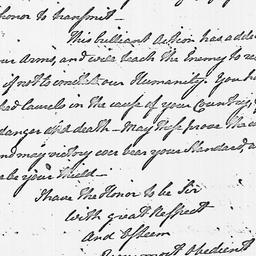 honor to transmit —
This brilliant Action has added
our Arms, and will teach the Enemy to re
if not to emulate our Humanity. You have
Laurels in the cause of your Country,
danger and death — May these prove the
and may victory ever bear your Standard, a
be your shield —
I have the Honor to be Sir
with great Respect
And Esteem
most obedient